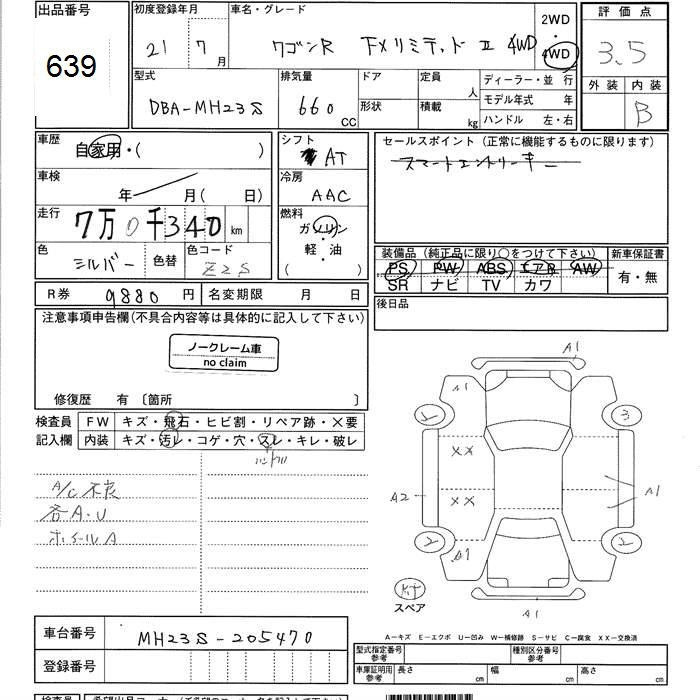 出品番号 初度登録年月 車名・グレード 2WD 評価点
639 21 7月 ワゴンR FXリミテッドⅡ 4WD 4WD 3.5
型式 排気量 ドア 定員 人 ディーラー・並行 外装 内装
DBA-MH23S 660 CC 形状 積載 kg モデル年式 年 B
ハンドル 左・右
車歴 自家用・( ) シフト AT セールスポイント(正常に機能するものに限ります)
車検 年 月( 日) 冷房 AAC スマートエントリーキー
走行 7万0千340km 燃料 ガソリン
軽・油
( )
色 シルバー 色替 色コード Z2S 装備品(純正品に限り○をつけて下さい) 新車保証書
PS PW ABS エアB AW 有・無
SR ナビ TV カワ
R券 9880円 名変期限 月 日 後日品
注意事項申告欄(不具合内容等は具体的に記入して下さい)
ノークレーム車
no claim
修復歴 有〔箇所 〕
検査員 FW キズ・飛石・ヒビ割・リペア跡・×要
記入欄 内装 キズ・汚レ・コゲ・穴・スレ・キレ・破レ
ハンドル
A/C不良
各A.U
ホイールA
A1
A1
1 3
XX
A2 XX A1
2 2
A1
スペア A1
A-キズ E-エクボ U-凹み W-補修跡 S-サビ C-腐食 XX-交換済
車台番号 MH23S-205470
型式指定番号 参考 種類区分番号 参考
登録番号 車庫証明用 参考 長さ cm 幅 cm 高さ cm